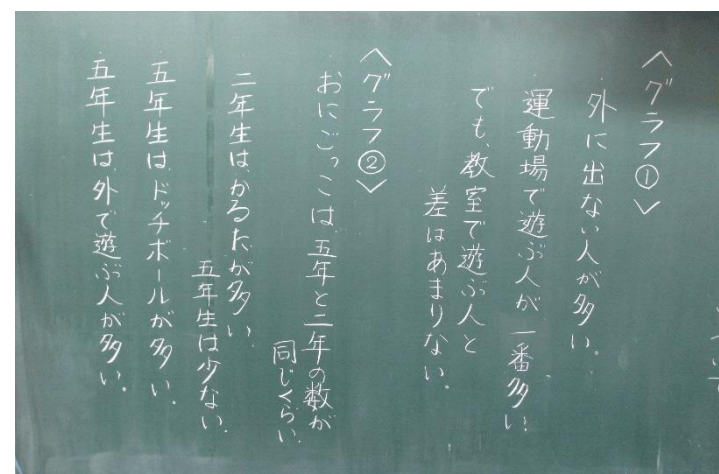 〈グラフ①〉
・外に出ない人が多い。
・運動場で遊ぶ人が一番多い
でも、教室で遊ぶ人と
差はあまりない。
〈グラフ②〉
・おにごっこは、五年と二年の数が
同じくらい。
・二年生は、かるたが多い。
五年生は少ない。
・五年生は、ドッチボールが多い。
・五年生は、外で遊ぶ人が多い。